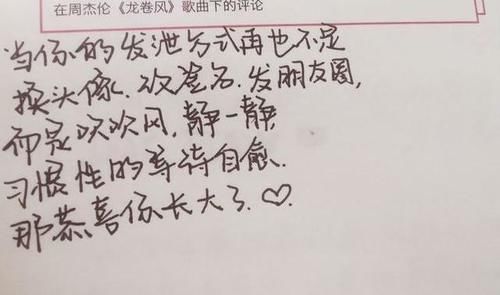 在周杰伦《龙卷风》歌曲下的评论
当你的发泄方式再也不是
换头像.改签名.发朋友圈,
而是吹吹风,静一静,
习惯性的等待自愈.
那恭喜你长大了.♡.